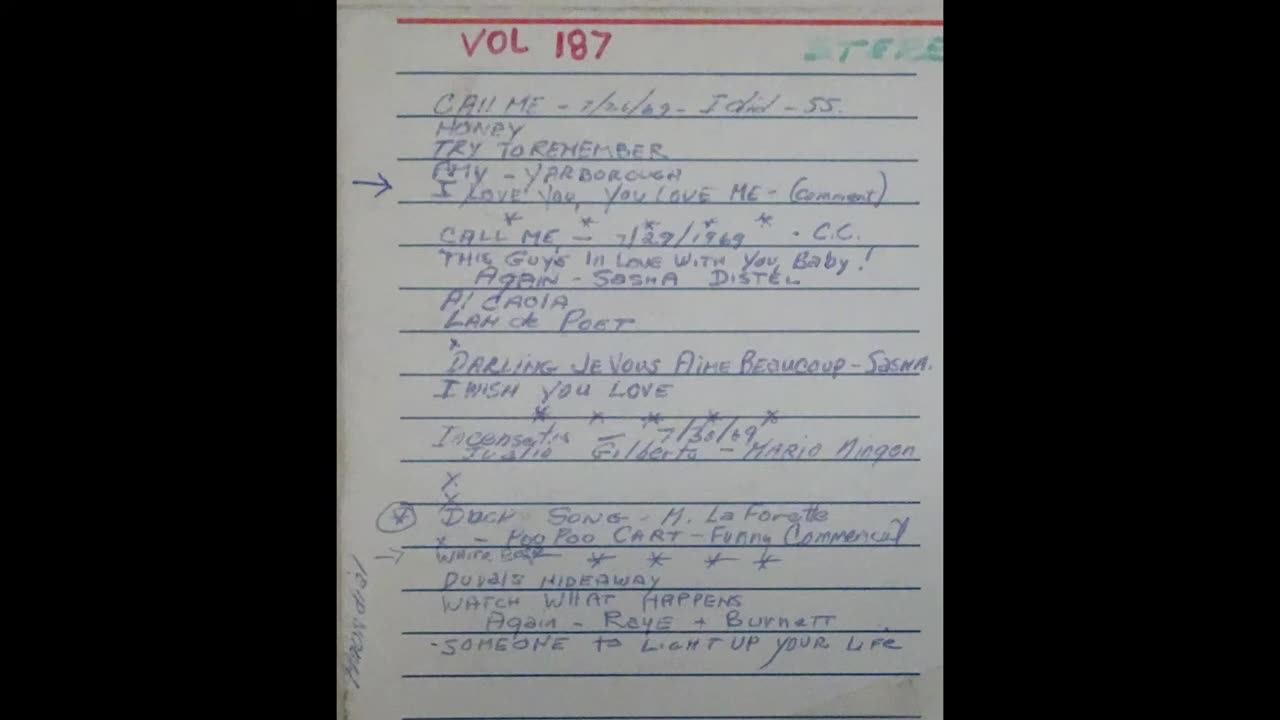 VOL 187
STERE
CALL ME - 7/26/69 - I did - 55.
HONEY
TRY TO REMEMBER
AMY - YARBOROUGH
→ I LOVE YOU, YOU LOVE ME - (Comment)
* * * * *
CALL ME - 7/29/1969 . C.C.
THIS GUY'S IN LOVE WITH YOU, Baby!
AGAIN - SASHA DISTEL
Al CAOLA
LAH de POET
*
DARLING JE VOUS AIME BEAUCOUP - SASHA.
I WISH YOU LOVE
* * * * *
- 7/30/69
Gilberto - MARIO
X.
X
* SONG - M. LaForette
x - POO POO CART - Funny Commercial
→ WHITE * * * *
HIDEAWAY
WATCH WHAT HAPPENS
Again - RAYE + BURNETT
- SOMEONE to LIGHT UP YOUR LIFE